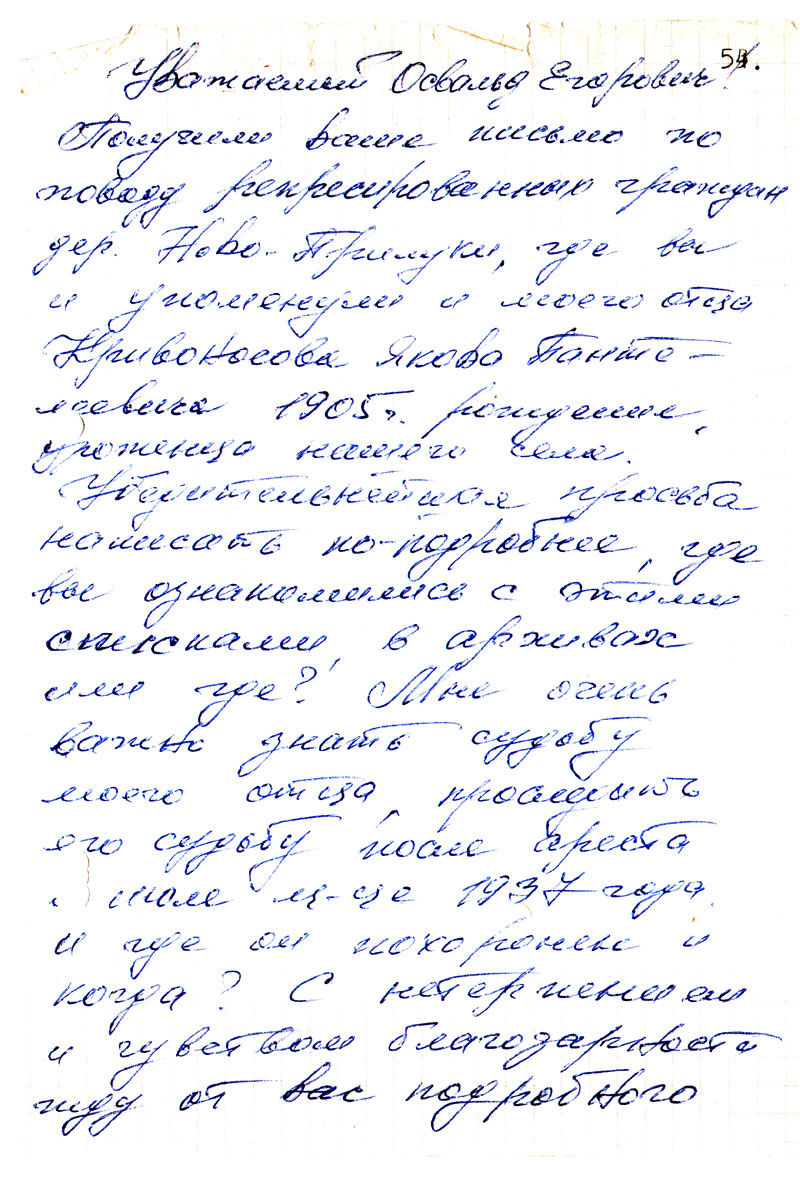 54.
Уважаемый Освальд Егорович!
Получили ваше письмо по
поводу репресированных граждан
дер. Ново-Прилуки, где вы
и упоменули и моего отца
Кривоносова Якова Панте-
леевича 1905 г. рождения,
уроженца нашего села.
Убедительнейшая просьба
написать по-подробнее, где
вы ознакомились с этими
списками, в архивах
или где? Мне очень
важно знать судьбу
моего отца, проследить
его судьбу после ареста
в июле м-це 1937 года
и где он похоронен и
когда? С нетерпением
и чувством благодарности
жду от вас подробного